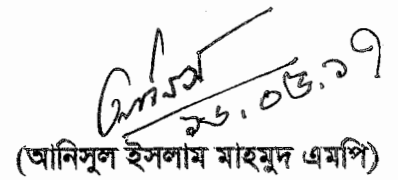 ১৬.০৫.১৭
(আনিসুল ইসলাম মাহমুদ এমপি)